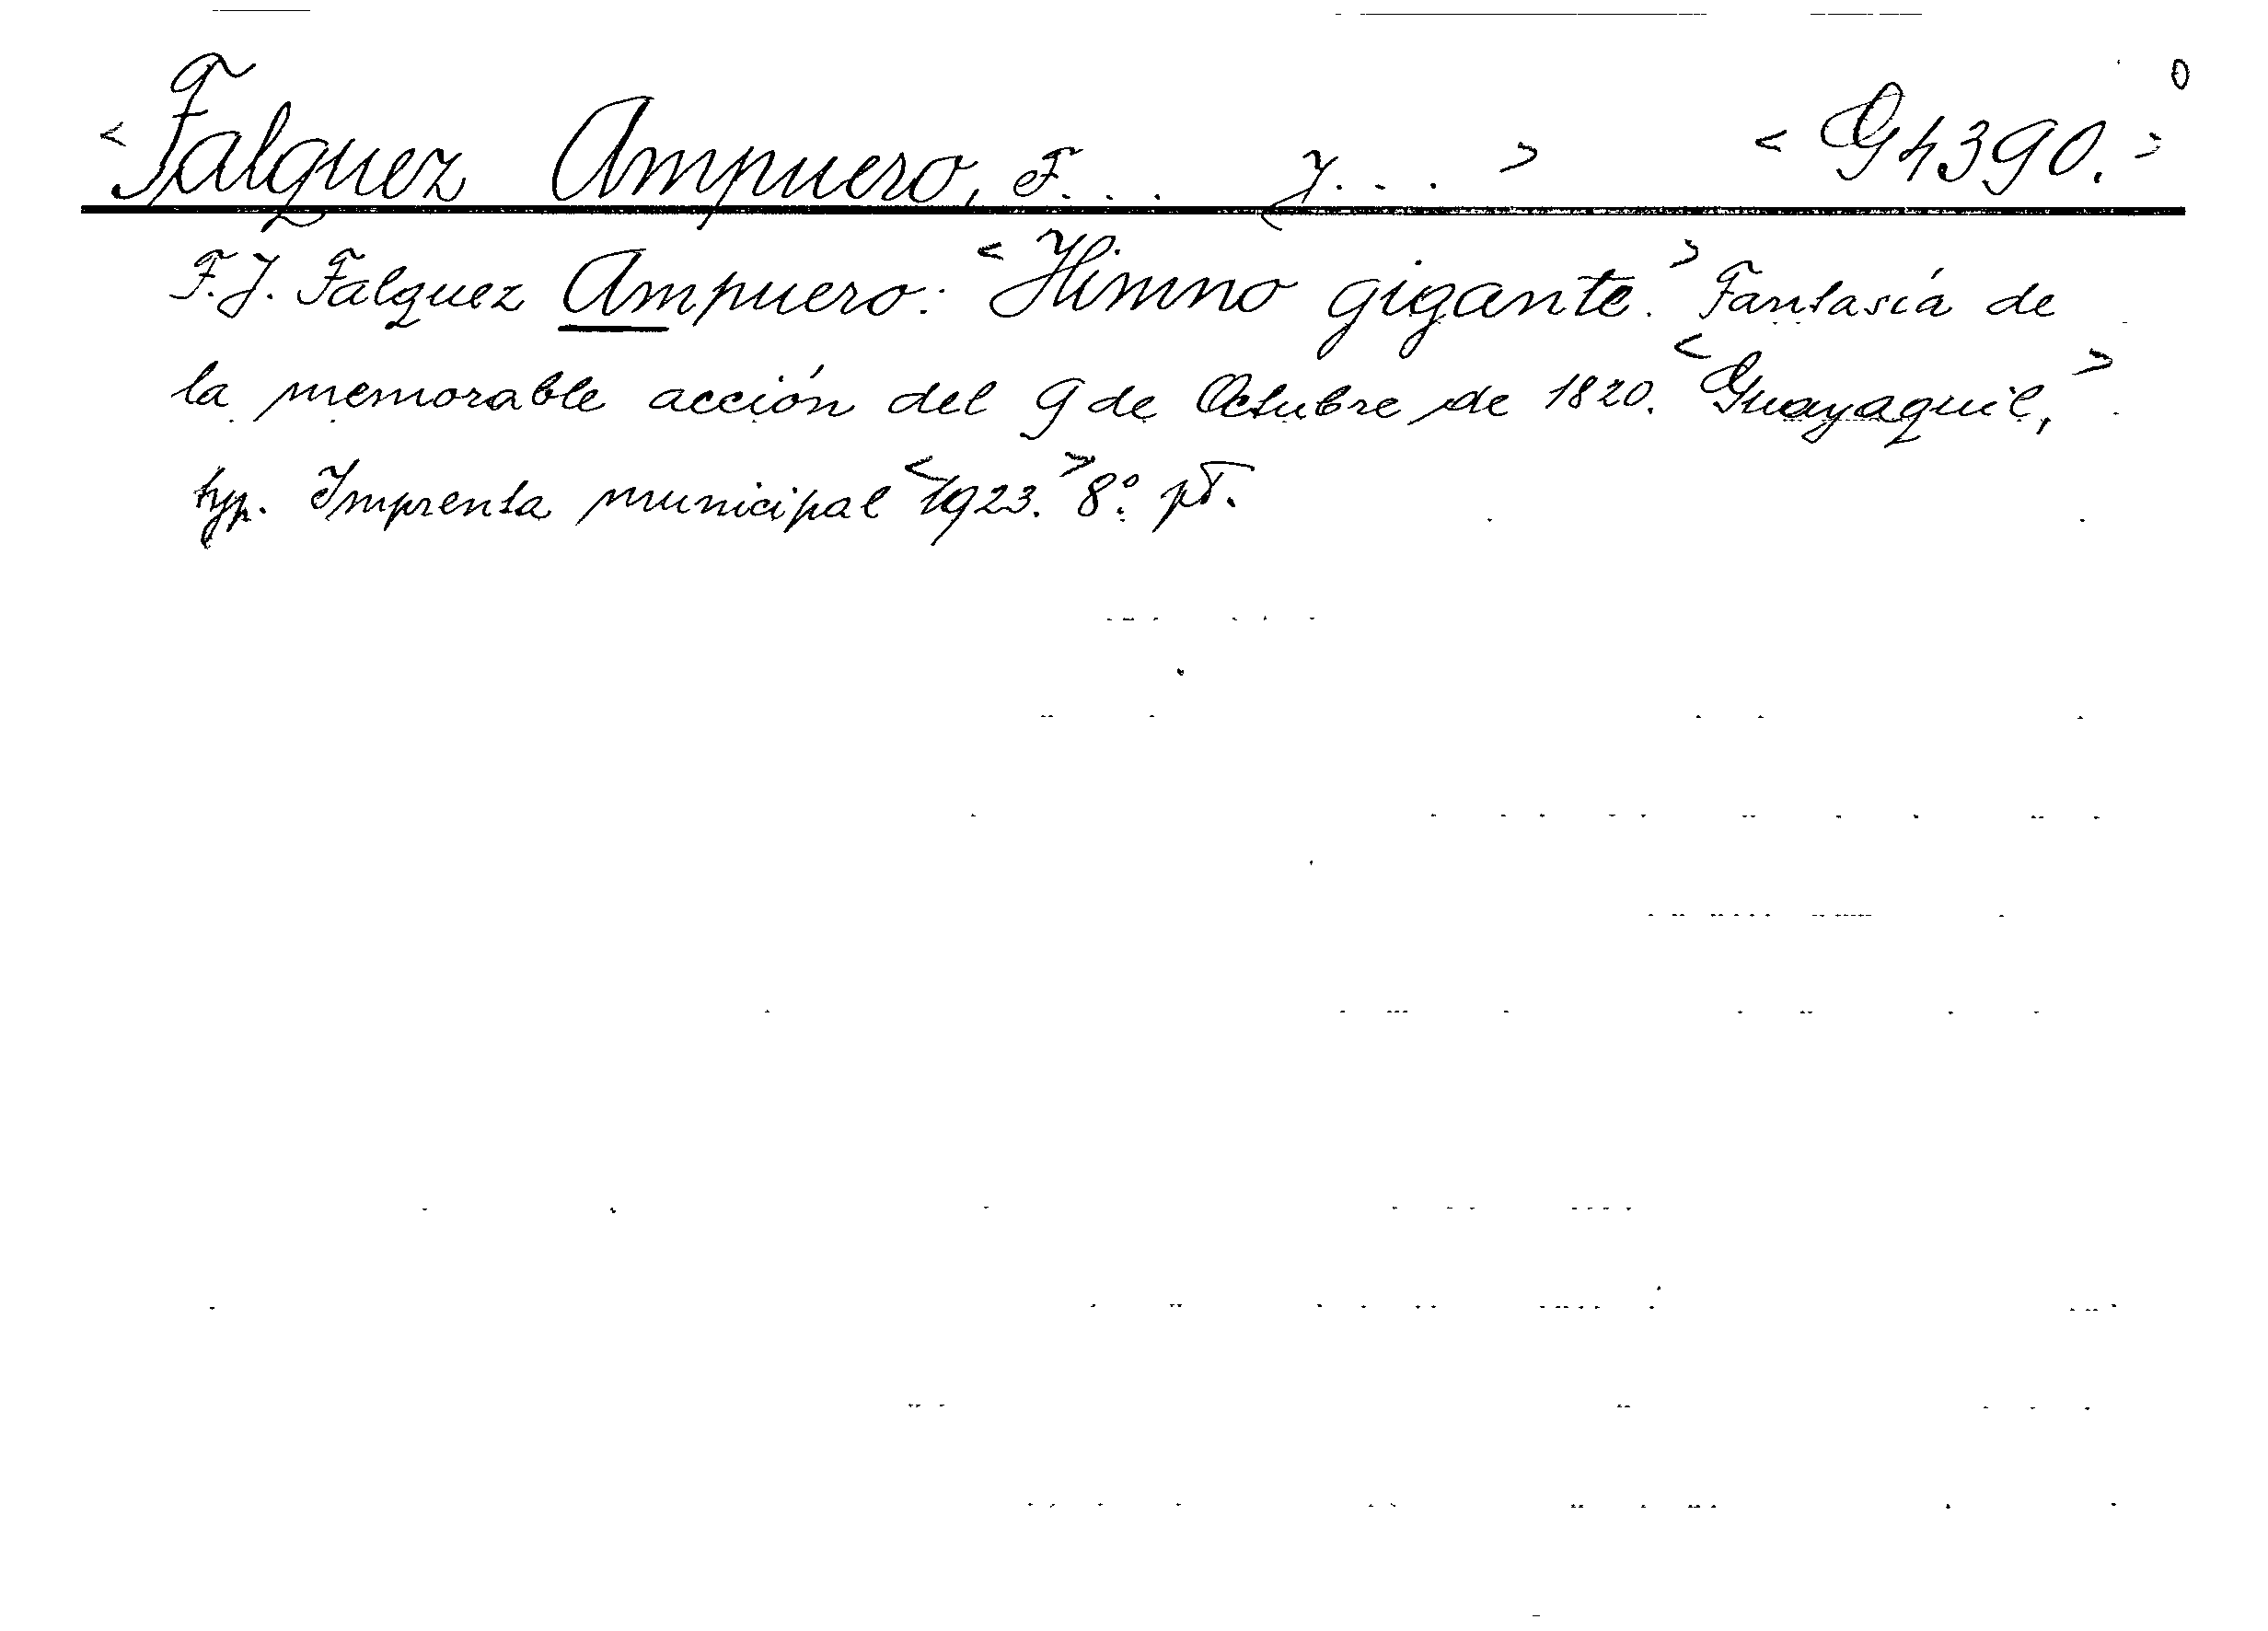 <Falquez Ampuero, F... J...> <G4390.>
F. J. Falquez Ampuero: <Himno gigante.> Fantasía de
la memorable acción del 9 de Octubre de 1820. <Guayaquil,>
typ. Imprenta municipal <1923.> 8º.